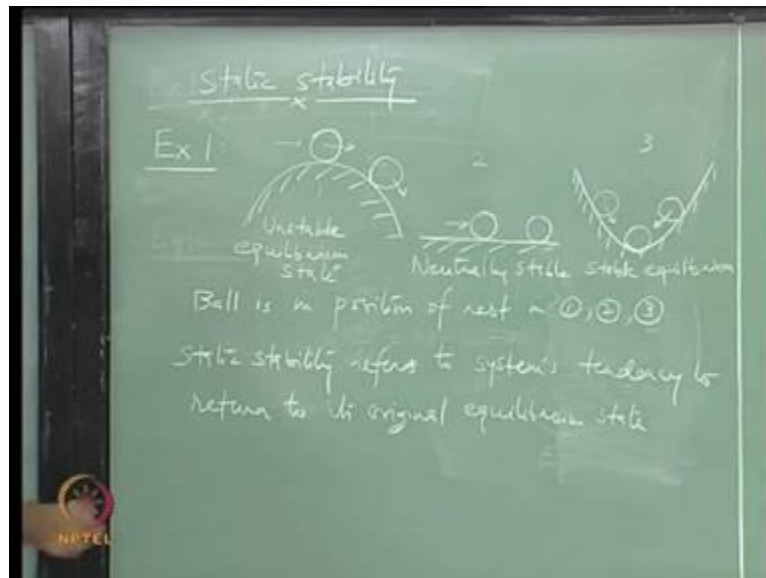 Static stability
Ex 1:
2
3
Unstable
equilibrium
state
Neutrally stable
stable equilibrium
Ball is in position of rest in ①, ②, ③
Static stability refers to system's tendency to
return to its original equilibrium state
NPTEL